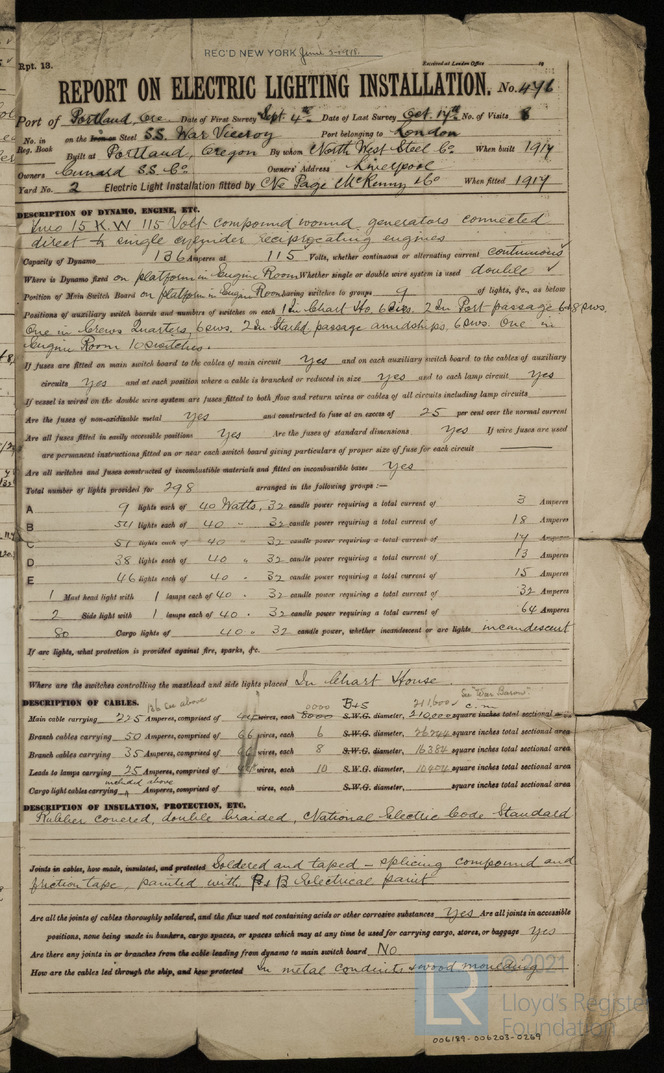 REC'D NEW YORK June 5-1918.
Rpt. 13.
Received at London Office 19
REPORT ON ELECTRIC LIGHTING INSTALLATION. No. 476
Port of Portland, Ore. Date of First Survey Sept 4th Date of Last Survey Oct. 17th No. of Visits 8
No. in Reg. Book on the Iron or Steel S.S. War Viceroy Port belonging to London
Built at Portland, Oregon By whom North West Steel Co. When built 1917
Owners Cunard S.S. Co Owners' Address Liverpool
Yard No. 2 Electric Light Installation fitted by Ne Page McKenny & Co When fitted 1917
DESCRIPTION OF DYNAMO, ENGINE, ETC.
15 K.W 115 Volt compound wound generators connected
direct to single cylinder reciprocating engines
Capacity of Dynamo 136 Amperes at 115 Volts, whether continuous or alternating current continuous
Where is Dynamo fixed on platform in Engine Room Whether single or double wire system is used double
Position of Main Switch Board on platform in Engine Room having switches to groups 9 of lights, &c., as below
Positions of auxiliary switch boards and numbers of switches on each 1 In Chart Ho. 6 2 In Port passage 6 & 8 sws.
One in Crews Quarters, 6 sws. 2 In Starbd. passage amidships, 6 sws. One in
Engine Room 10 switches.
If fuses are fitted on main switch board to the cables of main circuit yes and on each auxiliary switch board to the cables of auxiliary
circuits yes and at each position where a cable is branched or reduced in size yes and to each lamp circuit yes
If vessel is wired on the double wire system are fuses fitted to both flow and return wires or cables of all circuits including lamp circuits
Are the fuses of non-oxidizable metal yes and constructed to fuse at an excess of 25 per cent over the normal current
Are all fuses fitted in easily accessible positions yes Are the fuses of standard dimensions yes If wire fuses are used
are permanent instructions fitted on or near each switch board giving particulars of proper size of fuse for each circuit
Are all switches and fuses constructed of incombustible materials and fitted on incombustible bases yes
Total number of lights provided for 298 arranged in the following groups :—
A 9 lights each of 40 Watts, 32 candle power requiring a total current of 3 Amperes
B 54 lights each of 40 " 32 candle power requiring a total current of 18 Amperes
C 51 lights each of 40 " 32 candle power requiring a total current of 17 Amperes
D 38 lights each of 40 " 32 candle power requiring a total current of 13 Amperes
E 46 lights each of 40 " 32 candle power requiring a total current of 15 Amperes
1 Mast head light with 1 lamps each of 40 " 32 candle power requiring a total current of .32 Amperes
2 Side light with 1 lamps each of 40 " 32 candle power requiring a total current of .64 Amperes
80 Cargo lights of 40 " 32 candle power, whether incandescent or arc lights incandescent
If arc lights, what protection is provided against fire, sparks, &c.
Where are the switches controlling the masthead and side lights placed In Chart House.
DESCRIPTION OF CABLES. 136 see above 0000 B+S 211,600 c.m. See "War Baron"
Main cable carrying 225 Amperes, comprised of wires, each 0000 S.W.G. diameter, 210,000 square inches total sectional area
Branch cables carrying 50 Amperes, comprised of wires, each 6 S.W.G. diameter, square inches total sectional area
Branch cables carrying 35 Amperes, comprised of wires, each 8 S.W.G. diameter, 16384 square inches total sectional area
Leads to lamps carrying 25 Amperes, comprised of wires, each 10 S.W.G. diameter, 10404 square inches total sectional area
included above
Cargo light cables carrying Amperes, comprised of wires, each S.W.G. diameter, square inches total sectional area
DESCRIPTION OF INSULATION, PROTECTION, ETC.
Rubber covered, double braided, National Electric Code Standard
Joints in cables, how made, insulated, and protected Soldered and taped – splicing compound and
friction tape, painted with P & B Electrical paint
Are all the joints of cables thoroughly soldered, and the flux used not containing acids or other corrosive substances yes Are all joints in accessible
positions, none being made in bunkers, cargo spaces, or spaces which may at any time be used for carrying cargo, stores, or baggage yes
Are there any joints in or branches from the cable leading from dynamo to main switch board No
How are the cables led through the ship, and how protected In metal conduit & wood moulding
© 2021
LR
Lloyd's Register
Foundation
006189-006203-0269